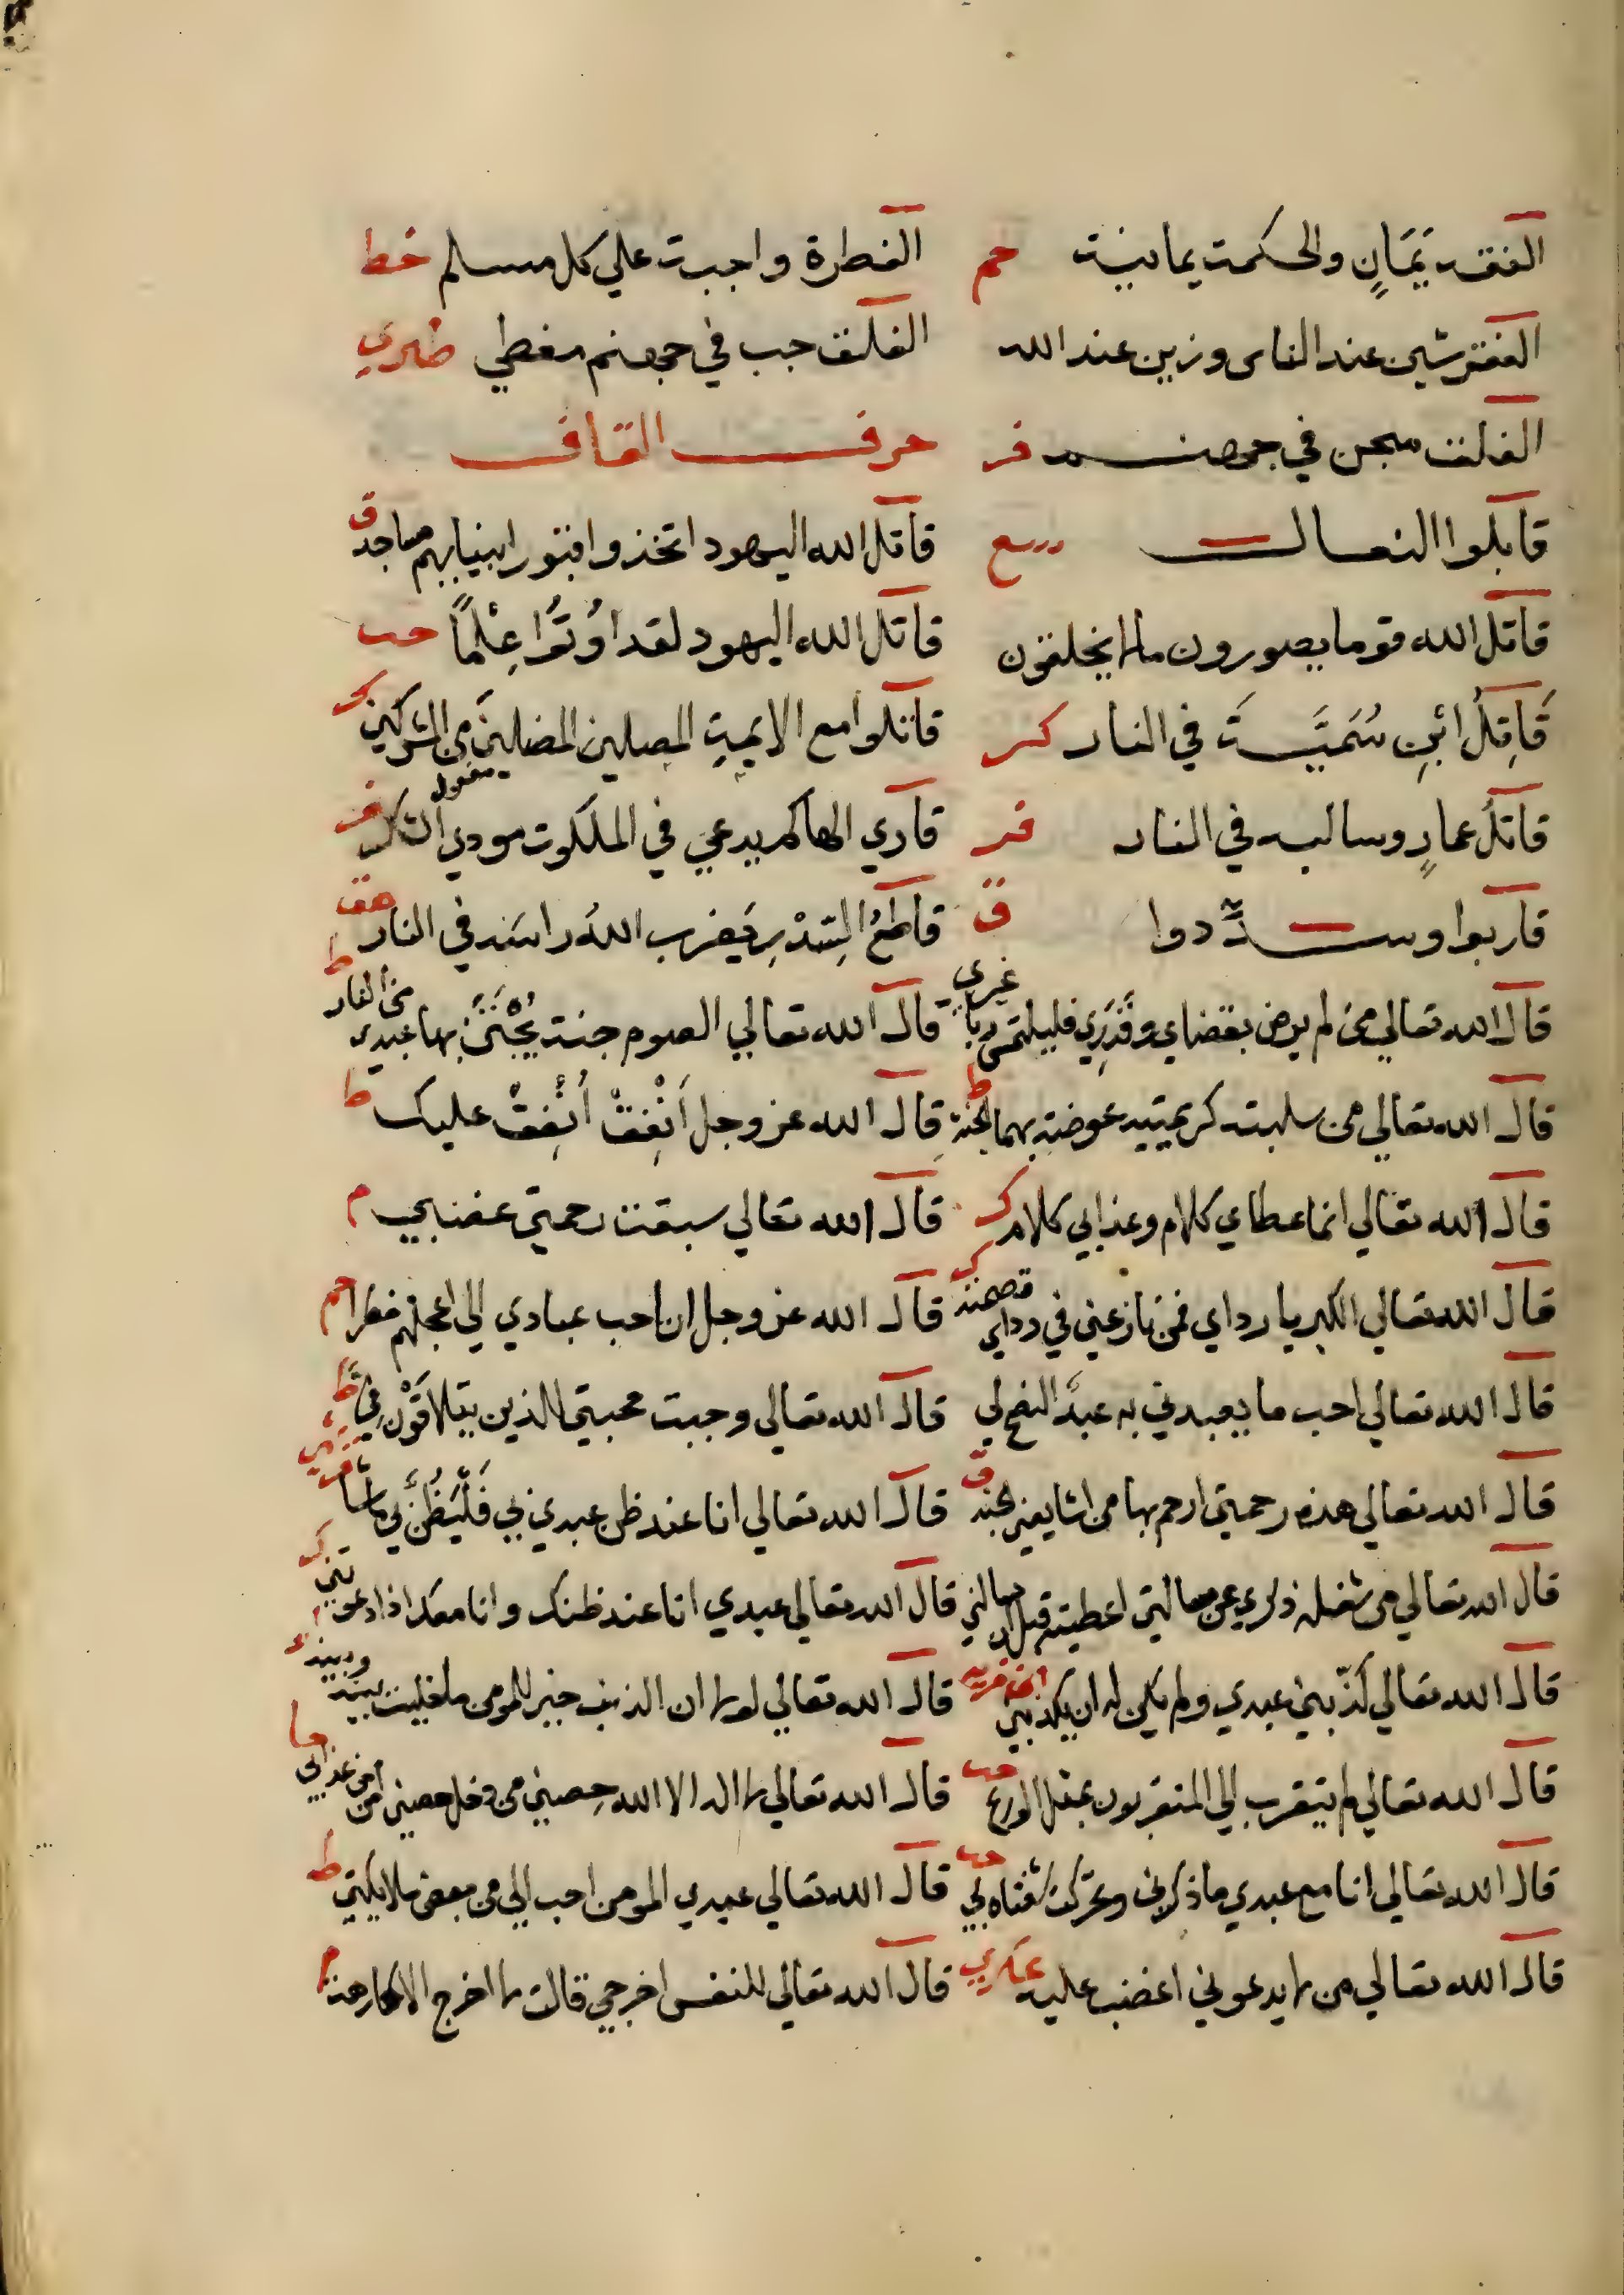 الفقه يَمَانٍ والحكمة يمانية حم
الفطرة واجبة على كل مسلم خط
الفقر شين عند الناس وزين عند الله
الفلق جب في جهنم مغطي طبري
الفلق سجن في جهنم فر
حرف القاف
قابلوا النعال
قاتل الله اليهود اتخذوا قبور انبيايهم مساجد ق
قاتل الله قوما يصورون ما لا يخلقون
قاتل الله اليهود لقد اُوتُوا عِلْماً حب
قَاتِلُ ابْنِ سُمَيَّةَ في النار كر
قاتلوا مع الايمة المصلين المضلين من المشركين
قاتلُ عمارٍ وسالبه في النار فر
قاري الهاكم يدعي في الملكوت مودي الشكر فر
قاربوا وسدّدوا ق
قاطعُ السِّدْرِ يَضرب اللهُ راسَه في النار هق
قال الله تعالي من لم يرض بقضاي وقَدَرِي فليلتمس ربا غيري
قال الله تعالي الصوم جنة يُجْتَنَّ بها عبدي من النار ط
قال الله تعالي من سلبت كريمتيه عوضته بهما الجنة ط
قال الله عز وجل اَنْفِقْ اُنْفِقْ عليك ط
قال الله تعالي انما عطاي كلام وعذابي كلام ك
قال الله تعالي سبقت رحمتي غضبي م
قال الله تعالي الكبريا رداي فمن نازعني في رداي قصمته ك
قال الله عز وجل ان احب عبادي الي اعجلهم فطرا حم
قال الله تعالي احب ما يعبدني به عبدي النصح لي
قال الله تعالي وجبت محبتي للذين يتلاقَوْن فِيَّ ط
قال الله تعالي هذه رحمتي ارحم بها من اشا يعني الجنة ق
قال الله تعالي انا عند ظن عبدي بي فَلْيَظُنَّ بي ما شا
قال الله تعالي من شغله ذكري عن مسالتي اعطيته قبل ان يسالني
قال الله تعالي عبدي انا عند ظنك وانا معك اذا دعوتني ك
قال الله تعالي كَذّبني عبدي ولم يكن له ان يكذبني
قال الله تعالي لولا ان الذنب خير للمومن ما خليت بينه وبينه
قال الله تعالي لم يتقرب الي المتقربون بمثل الورع
قال الله تعالي لا اله الا الله حِصني من دخل حصني امن من عذابي
قال الله تعالي انا مع عبدي ما ذكرني وتحركت شفتاه بي حب
قال الله تعالي عبدي المومن احب الي من بعض ملايكتي ط
قال الله تعالي من لا يدعوني اغضب عليه عسكري
قال الله تعالي للنفس اخرجي قالت لا اخرج الا كارهة م